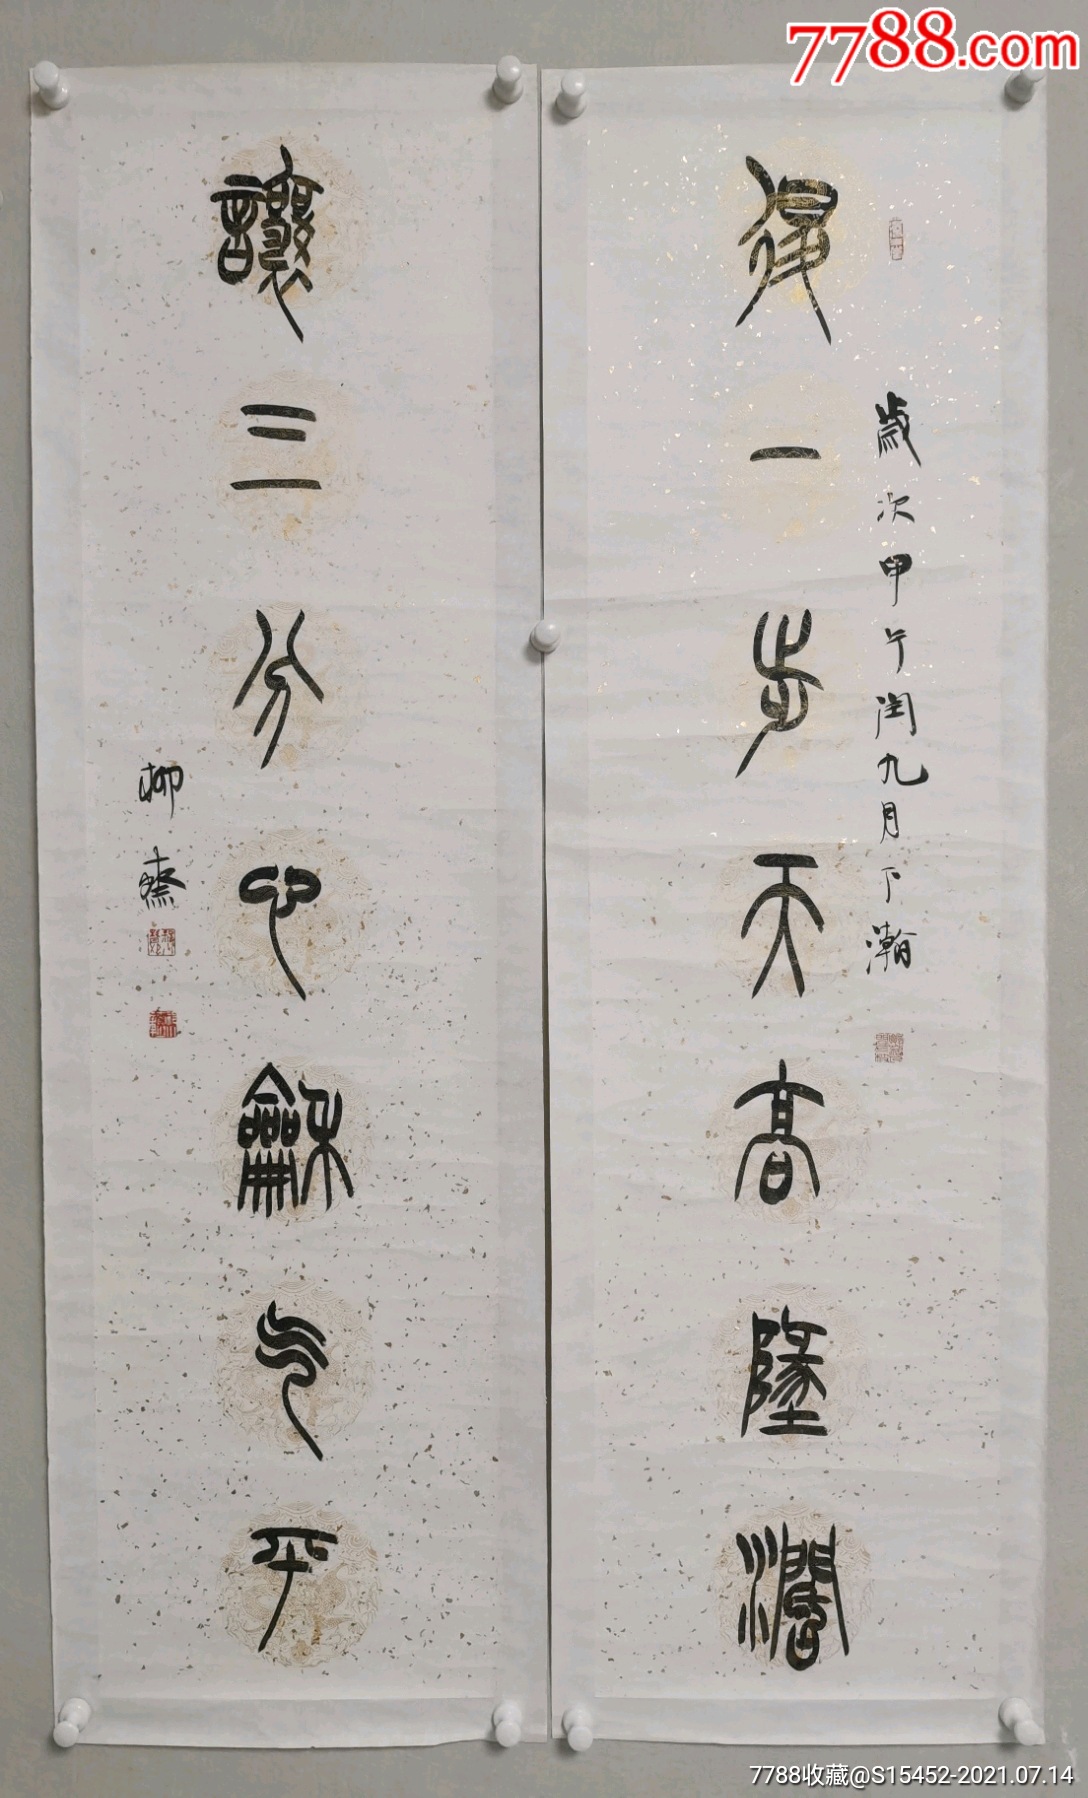 7788.com
退一步天高墬闊
歲次甲午閏九月下瀚
讓三分心龢气平
柳齋
7788收藏@S15452-2021.07.14